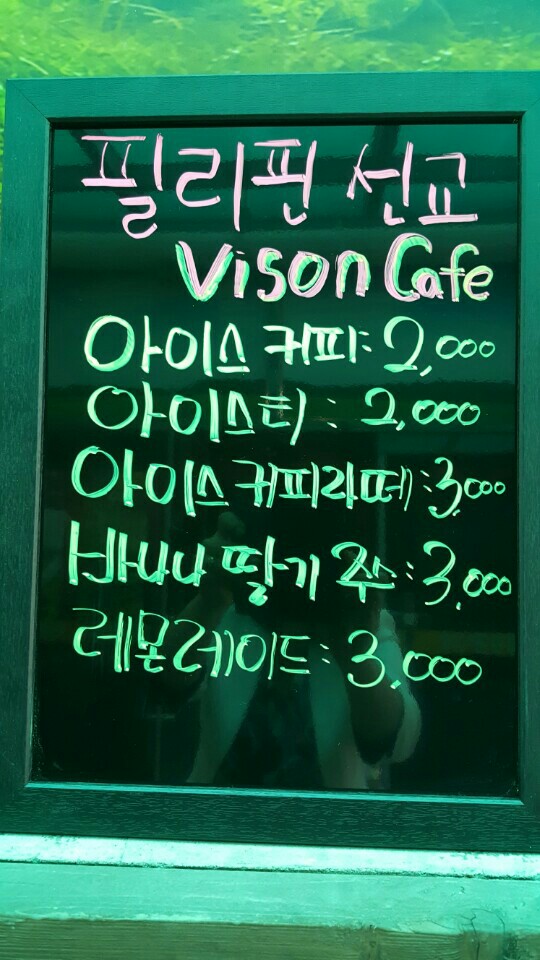 필리핀 선교
Vison Cafe
아이스 커피: 2,000
아이스티: 2,000
아이스 커피라떼: 3,000
바나나 딸기 주스: 3,000
레몬레이드: 3,000